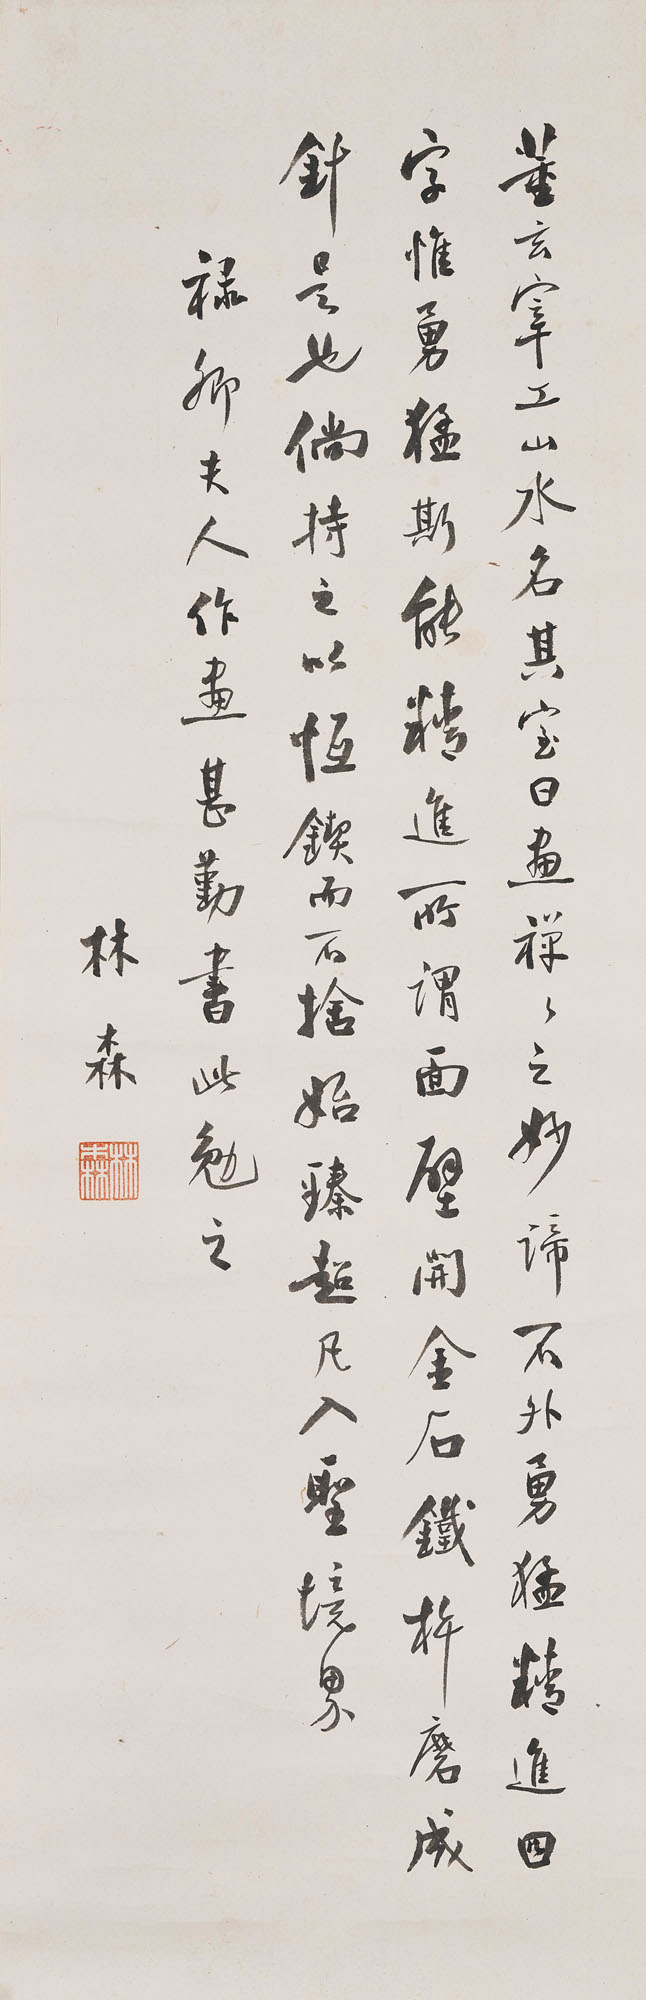 董玄宰工山水名其室曰畫禪々之妙諦不外勇猛精進四
字惟勇猛斯能精進所謂面壁開金石鐵杵磨成
針是也倘持之以恆鍥而不捨始臻超凡入聖境界
祿卿夫人作畫甚勤書此勉之
林森
林森